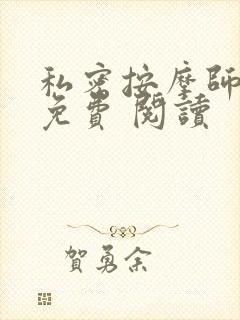 私密按摩師
免費閱讀
賀勇余